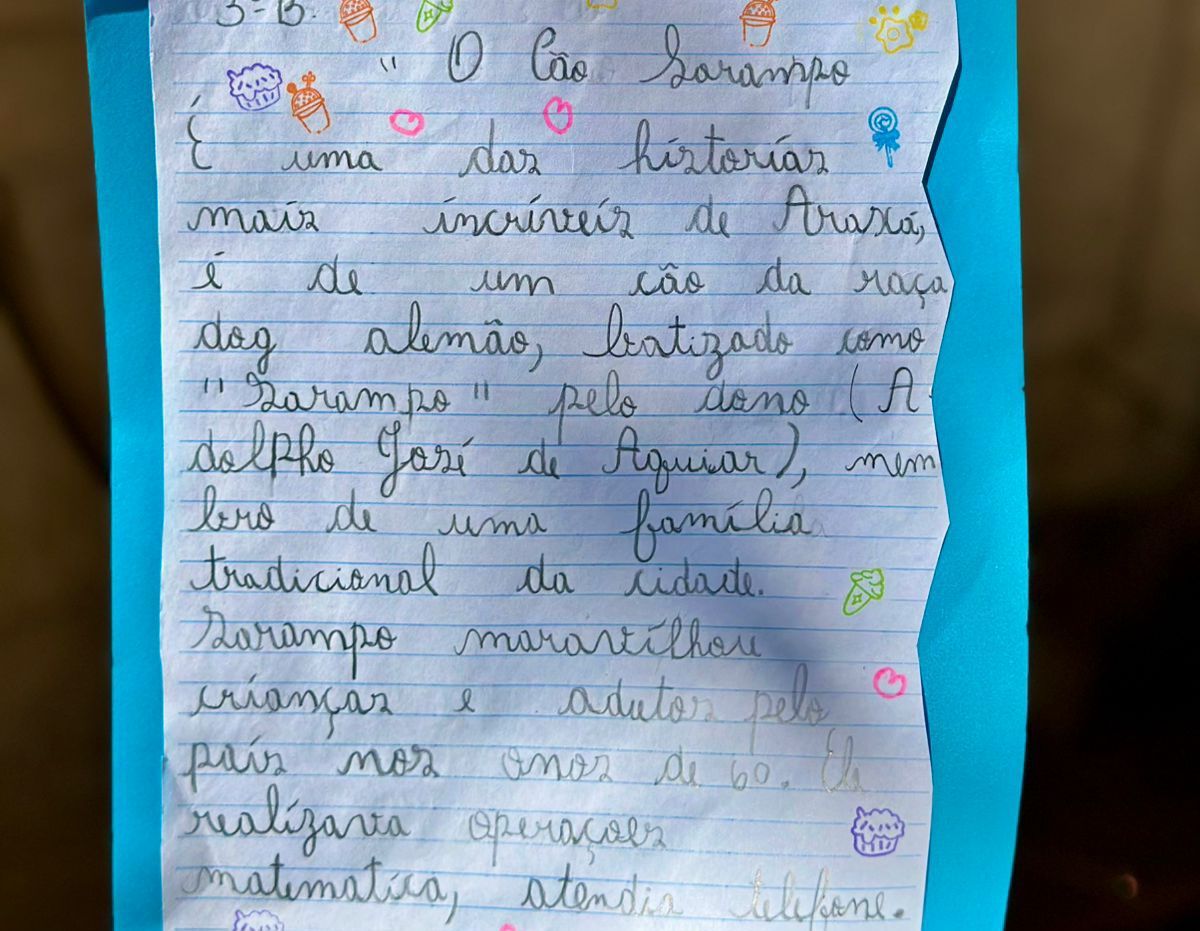 3ºB.
" O Cão Sarampo
É uma das histórias
mais incríveis de Araxá,
é de um cão da raça
dog alemão, batizado como
"Sarampo" pelo dono (A
dolpho José de Aguiar), mem
bro de uma família
tradicional da cidade.
Sarampo maravilhou
crianças e adutos pelo
país nos anos de 60. Ele
realizava operaçoes
matematica, atendia telefone.